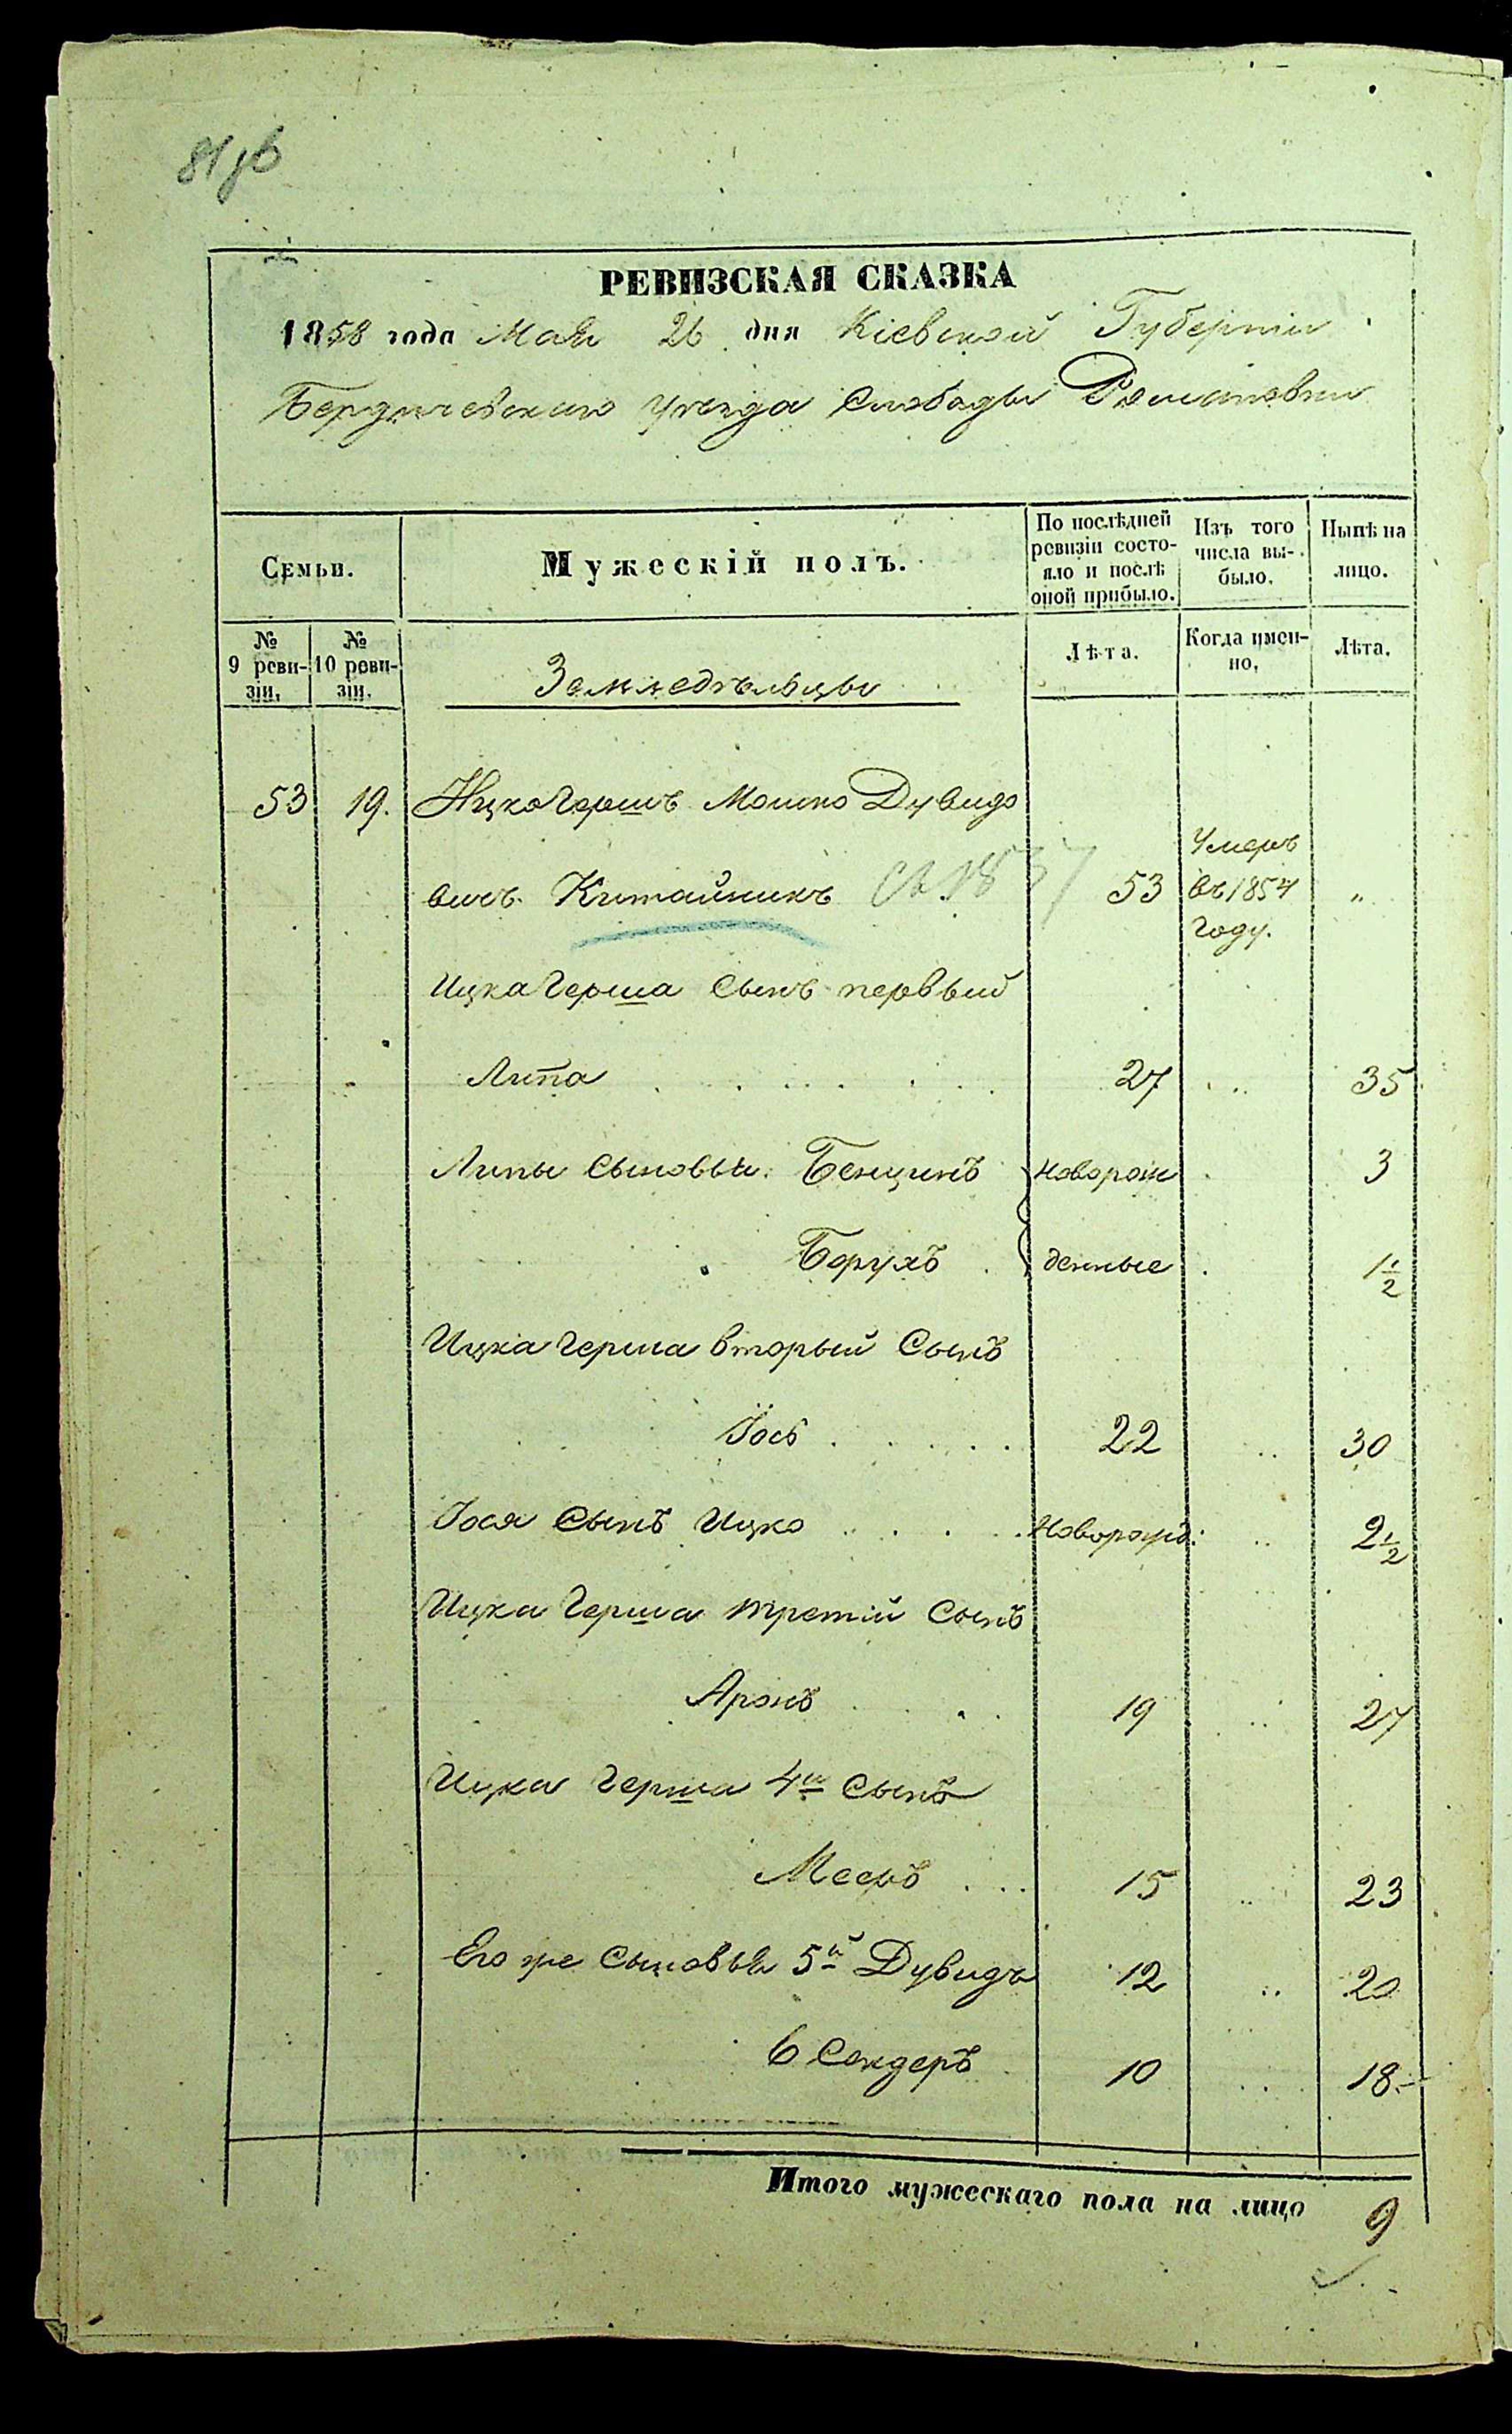 РЕВИЗСКАЯ СКАЗКА
1858 года Мая 26 дня Кіевской Губерніи
Бердичевскаго уѣзда Слободы Романовки
Семьи.
Мужескій полъ.
По послѣдней ревизіи состо-
яло и послѣ
оной прибыло.
Изъ того
числа вы-
было.
Нынѣ на
лицо.
№
9 реви-
зіи.
№
10 реви-
зіи.
Земледѣльцы
Лѣта.
Когда имен-
но.
Лѣта.
53 19. Ицко Гершъ Мошко Дувидо
вичъ Китайникъ 53 Умеръ въ 1854 году. "
Ицка Герша Сынъ первый
Липа 27 35
Липы Сыновья: Бенционъ новорож 3
Борухъ денные 1 1/2
Ицка Герша вторый Сынъ
Іось 22 30
Іося Сынъ Ицко Новорожд: 2 1/2
Ицка Герша третій Сынъ
Аронъ 19 27
Ицка Герша 4й Сынъ
Мееръ 15 23
Его же Сыновья 5й Дувидъ 12 20
6 Сендеръ 10 18
Итого мужескаго пола на лицо 9